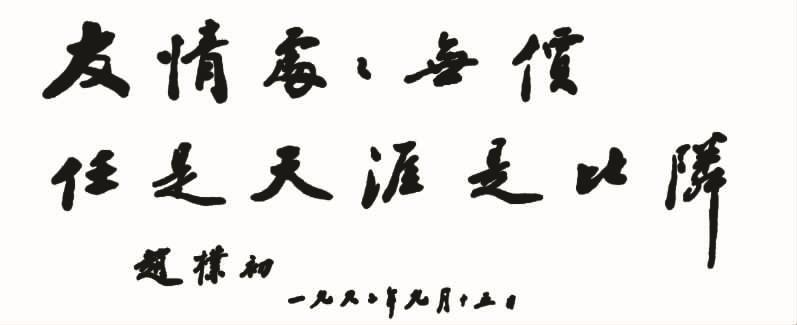 友情處〻無價
任是天涯是比隣
趙樸初
一九九二年九月十五日